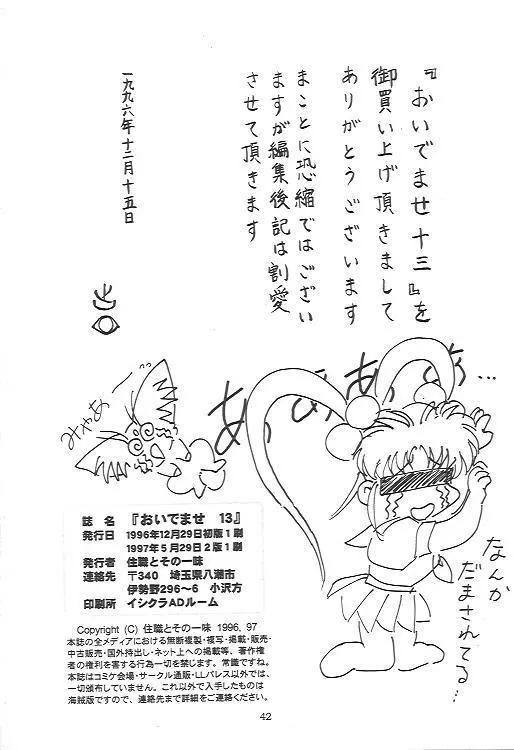 『おいでませ十三』を
御買い上げ頂きまして
ありがとうございます
まことに恐縮ではござい
ますが編集後記は割愛
させて頂きます
一九九六年十二月十五日
あぁあぁあぁ…
みゃあーっ
なんか
だまされてる…
誌　名　『おいでませ　13』
発行日　1996年12月29日初版1刷
1997年5月29日2版1刷
発行者　住職とその一味
連絡先　〒340　埼玉県八潮市
伊勢野296～6　小沢方
印刷所　イシクラADルーム
Copyright (C) 住職とその一味 1996, 97
本誌の全メディアにおける無断複製・複写・掲載・販売・
中古販売・国外持出し・ネット上への掲載等、著作権
者の権利を害する行為一切を禁じます。常識ですね。
本誌はコミケ会場・サークル通販・LLパレス以外では、
一切頒布していません。これ以外で入手したものは
海賊版ですので、連絡先まで詳細をご連絡ください。
42